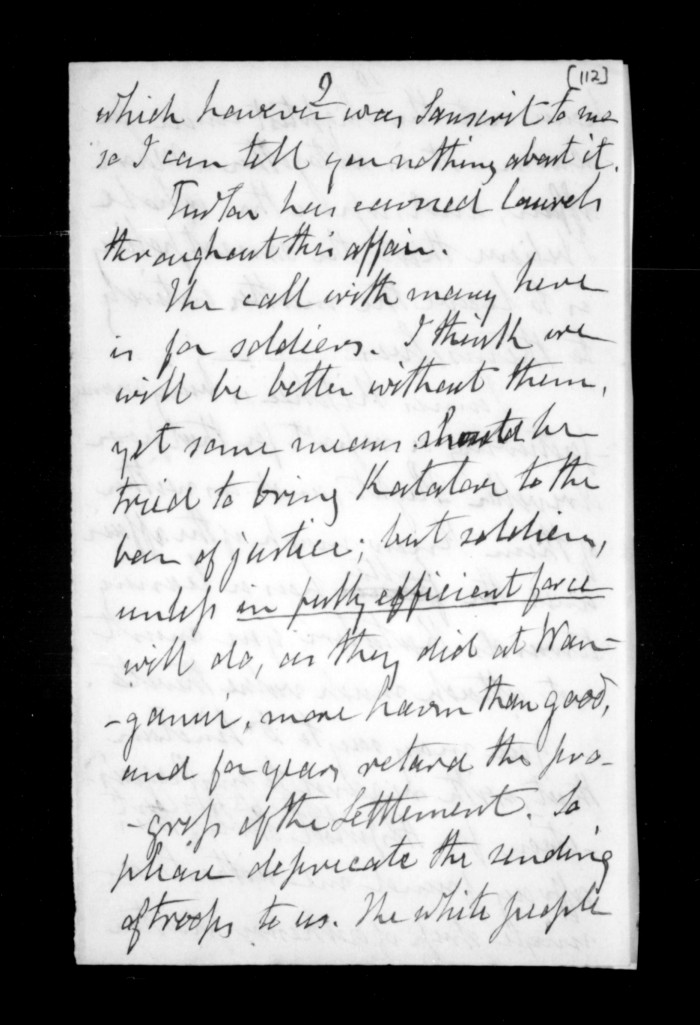 9
[112]
which however was Sanscrit to me
so I can tell you nothing about it.
has earned laurels
throughout this affair.
The call with many here
is for soldiers. I think we
will be better without them,
yet some means should be
tried to bring Katatore to the
bar of justice; but soldiers,
unless in fully efficient force
will do, as they did at Wan-
-ganui, more harm than good,
and for years retard the pro-
-gress of the Settlement. So
please deprecate the sending
of troops to us. The white people